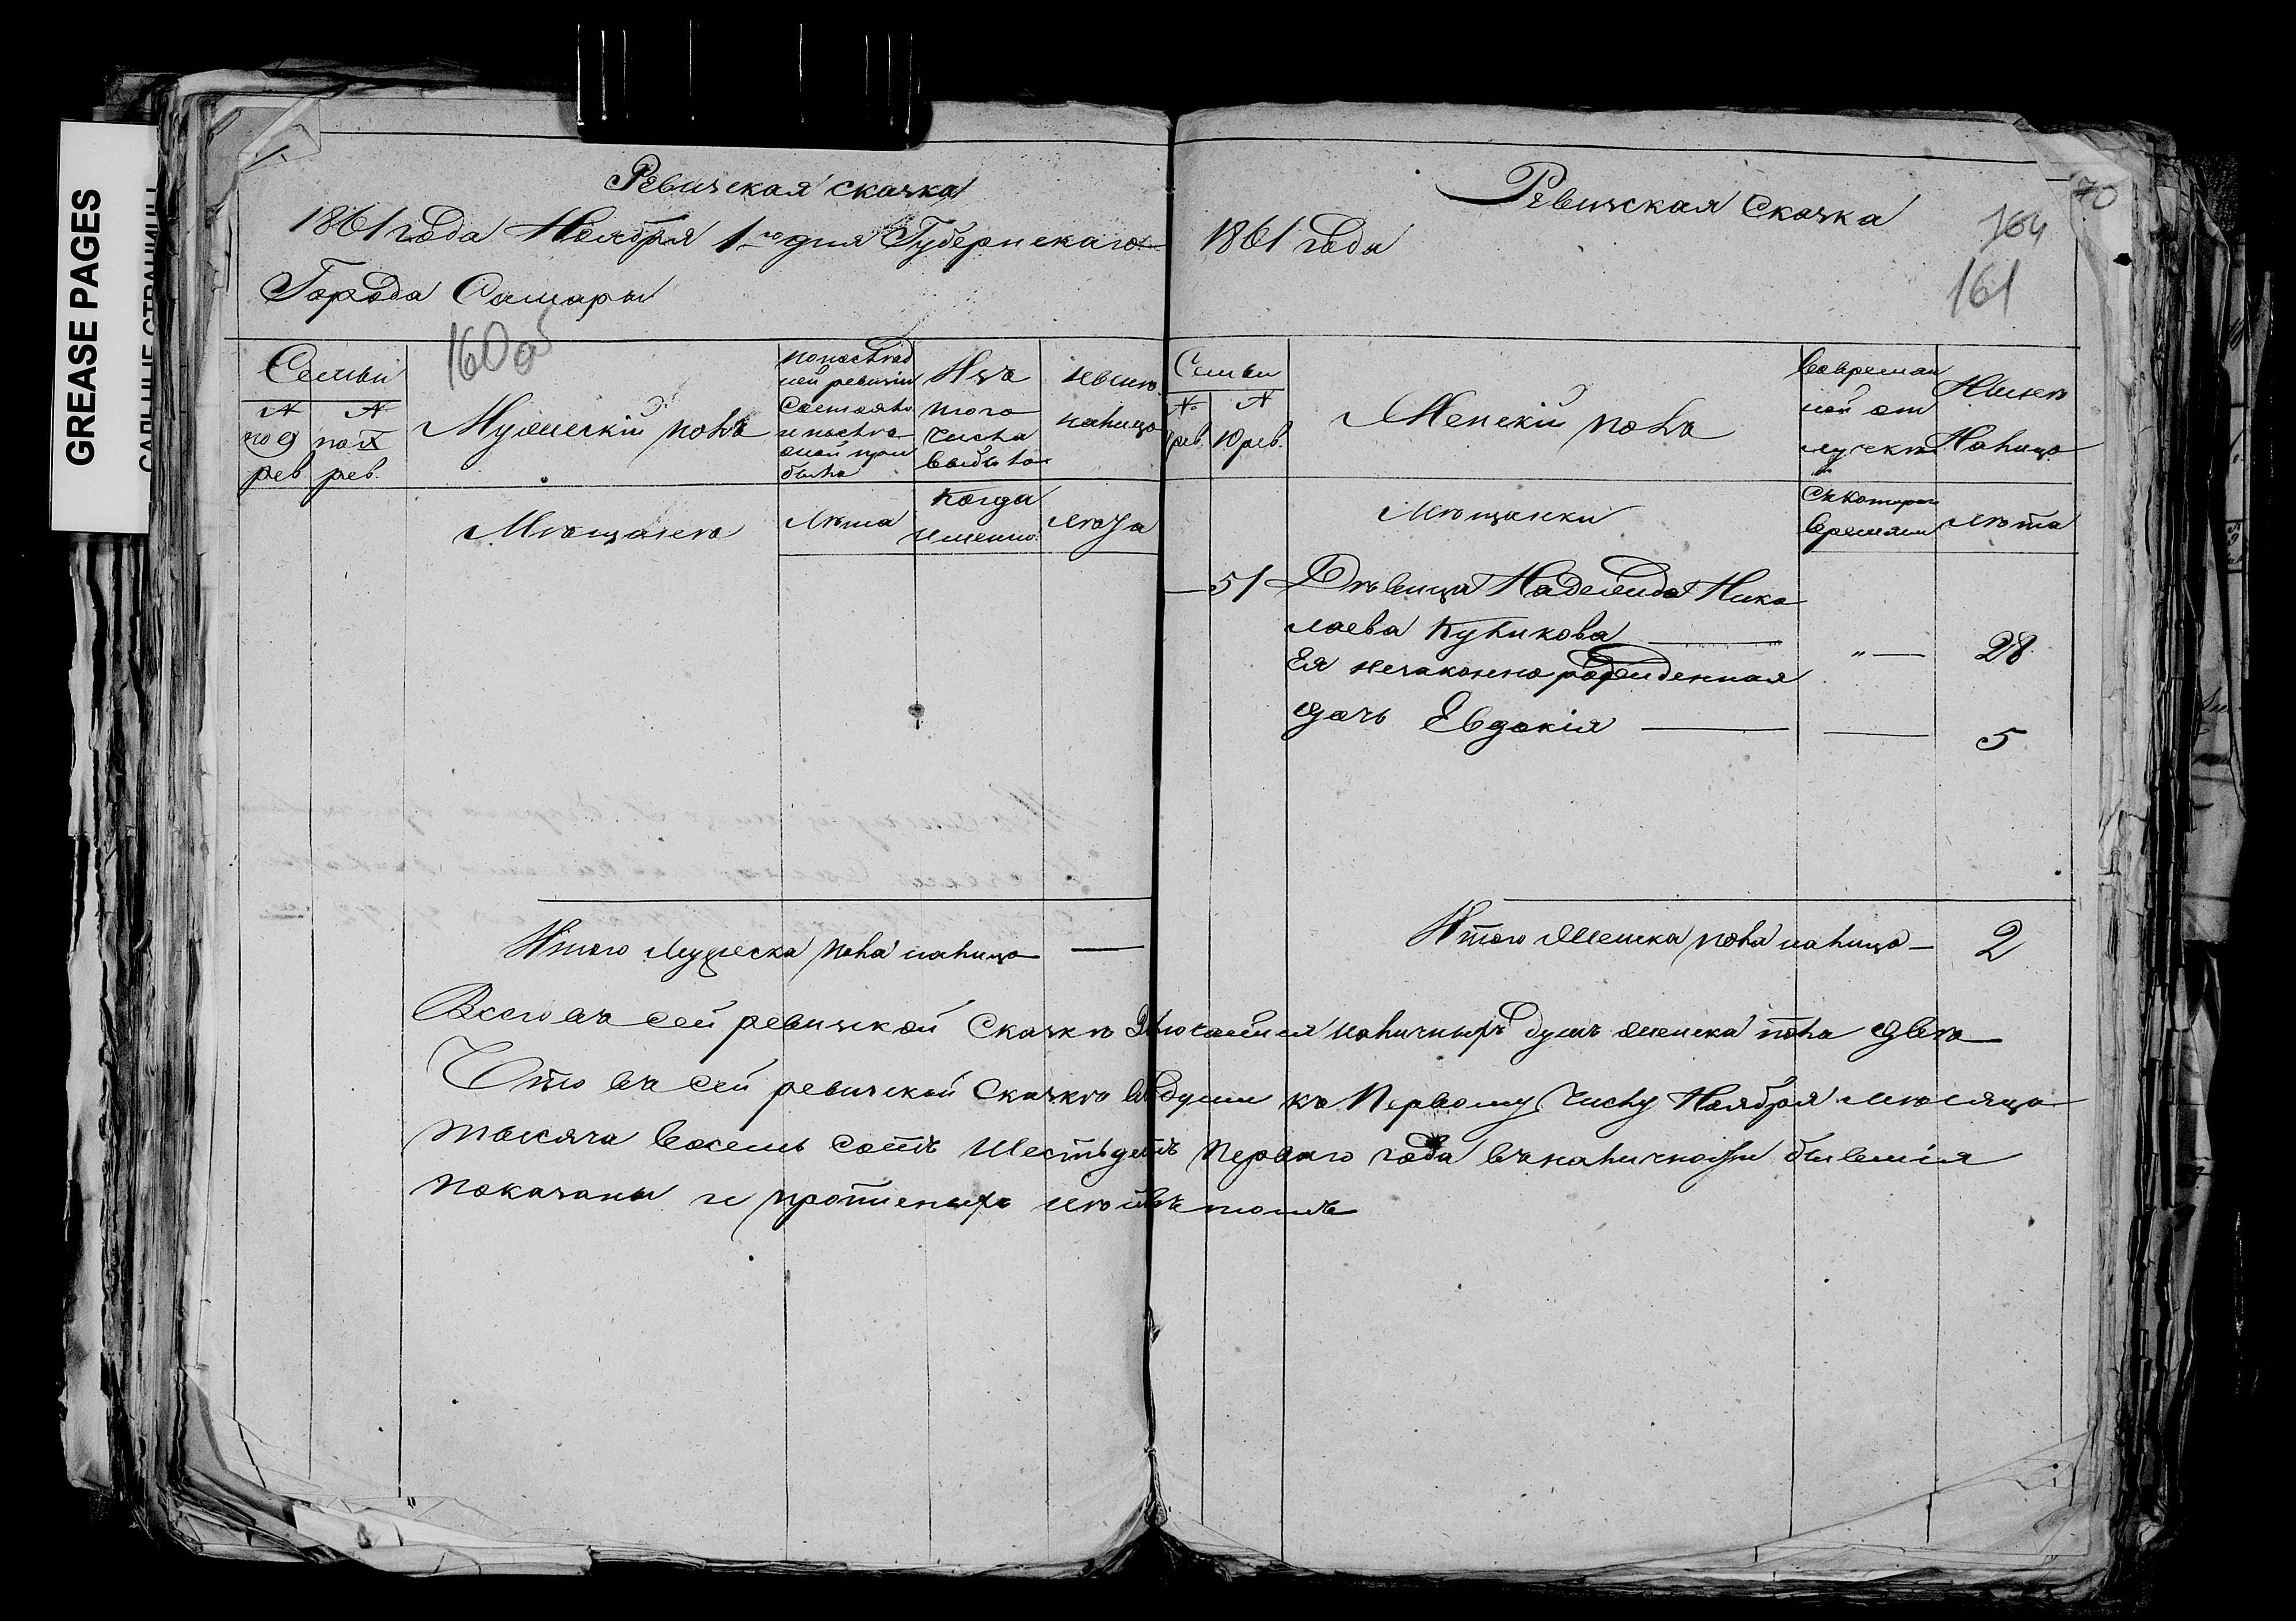 GREASE PAGES
САЛЬНЫЕ СТРАНИЦЫ
Ревизская сказка
1861 года Ноября 1-го дня Губернскаго
Города Самары
160об
Семьи
№ по 9 рев.
№ по X рев.
Мужескій полъ
По послед
ней ревизіи
состояло
и после
оной при
было
Изъ
того
числа
выбыло
Ныне
налицо
Мещане
Лета
Когда
именно
Лета
Итого мужеска пола налицо —
Ревизская Сказка
1861 года
70
164
161
Семьи
№ рев.
№ 10 рев.
Женскій полъ
Во времен
ной от
лучке
Ныне
Налицо
Мещанки
Съ котораго
времени
Лета
51 Девица Надежда Нико
лаева Куликова — „ — 28
Ея незаконно рожденная
дочь Евдокія — — 5
Итого женска пола налицо — 2
Всего въ сей ревизской Сказке наличныхъ душъ женска пола две
Что въ сей ревизской Сказке все души къ Первому числу Ноября месяца
тысяча восемь сотъ шестьдетъ перваго года въ наличности бывшія
показаны и